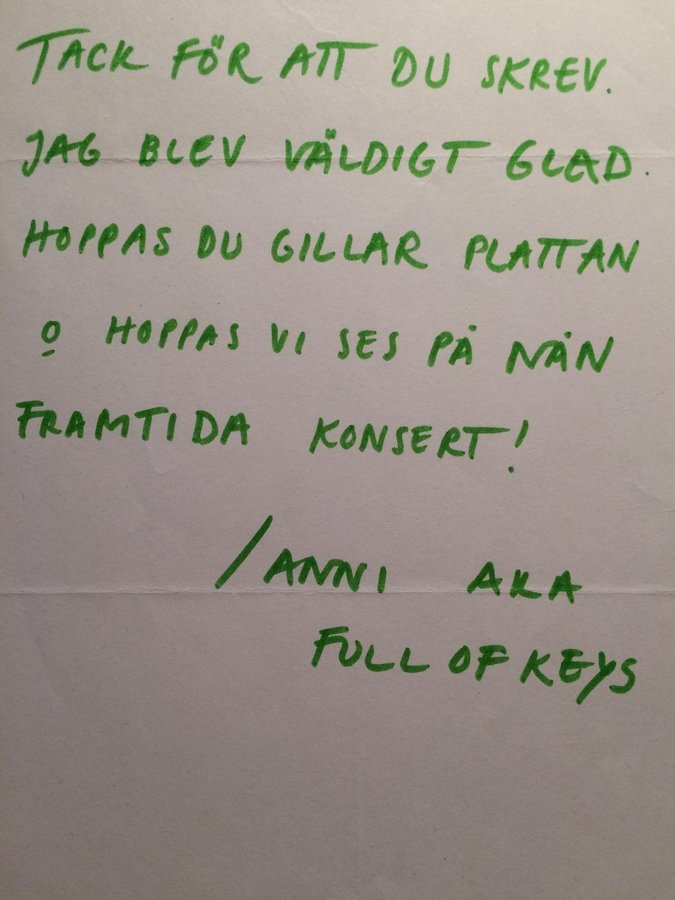 TACK FÖR ATT DU SKREV.
JAG BLEV VÄLDIGT GLAD.
HOPPAS DU GILLAR PLATTAN
o HOPPAS VI SES PÅ NÅN
FRAMTIDA KONSERT!
/ANNI AKA
FULL OF KEYS